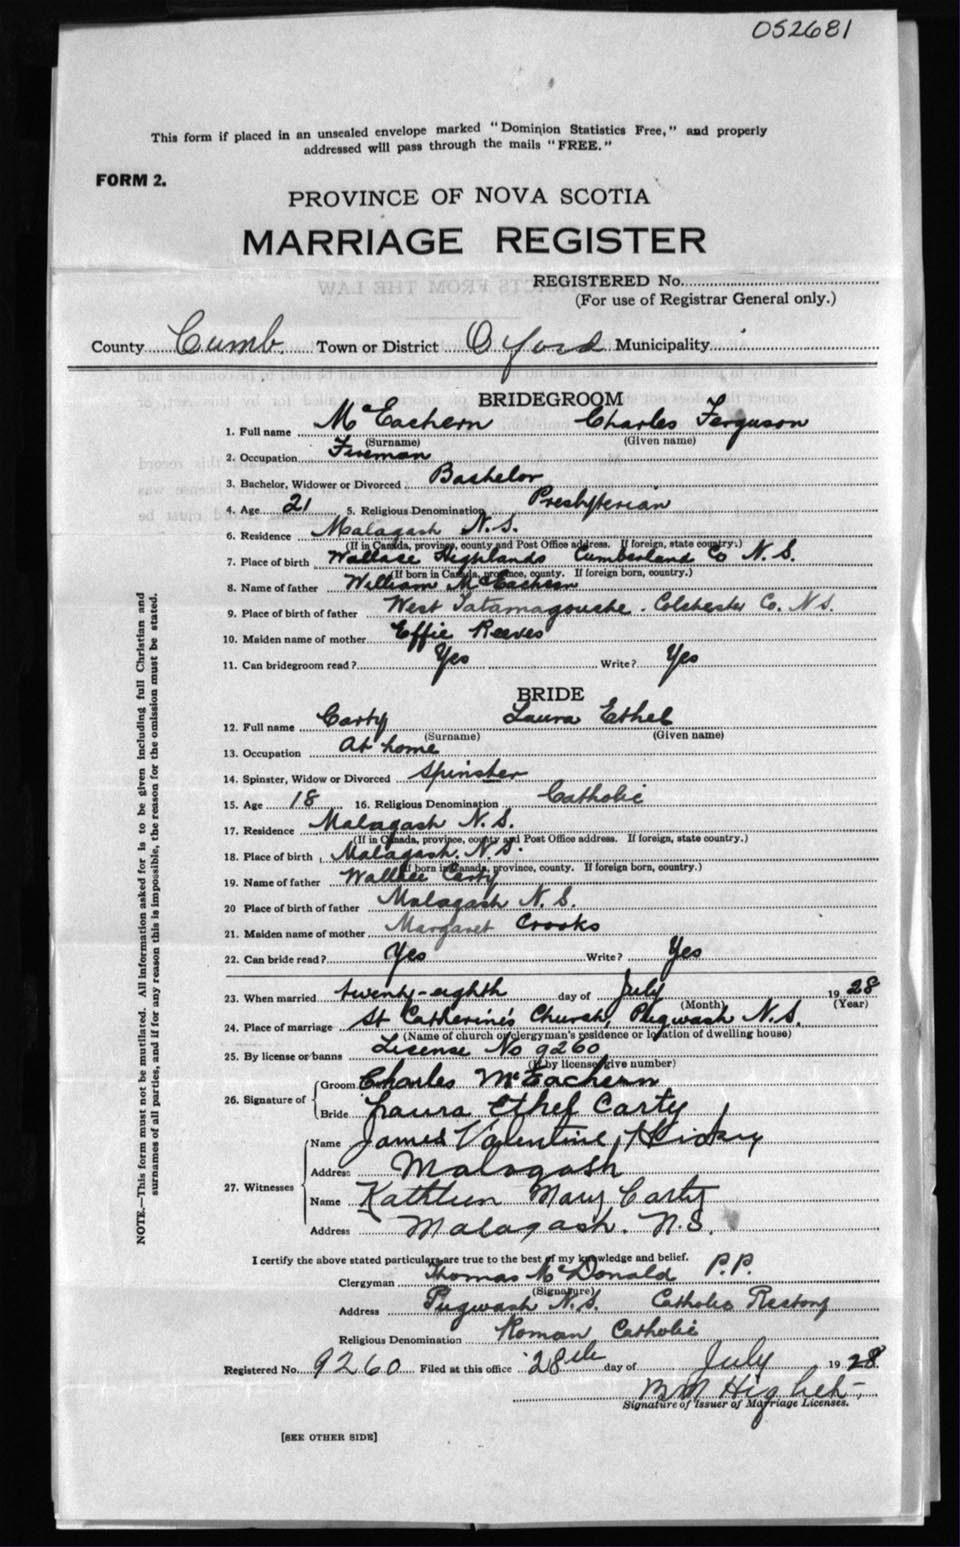 052681
This form if placed in an unsealed envelope marked "Dominion Statistics Free," and properly
addressed will pass through the mails "FREE."
FORM 2.
PROVINCE OF NOVA SCOTIA
MARRIAGE REGISTER
REGISTERED No.
(For use of Registrar General only.)
County Cumb. Town or District Oxford Municipality
BRIDEGROOM
1. Full name McEachern Charles Ferguson
(Surname) (Given name)
2. Occupation Fireman
3. Bachelor, Widower or Divorced Bachelor
4. Age 21 5. Religious Denomination Presbyterian
6. Residence Malagash N.S.
(If in Canada, province, county and Post Office address. If foreign, state country.)
7. Place of birth Wallace Highlands Cumberland Co N.S.
(If born in Canada, province, county. If foreign born, country.)
8. Name of father William McEachern
9. Place of birth of father West Tatamagouche. Colchester Co. N.S.
10. Maiden name of mother Effie Reeves
11. Can bridegroom read? Yes Write? Yes
BRIDE
12. Full name Carty Laura Ethel
(Surname) (Given name)
13. Occupation At home
14. Spinster, Widow or Divorced Spinster
15. Age 18 16. Religious Denomination Catholic
17. Residence Malagash N.S.
(If in Canada, province, county and Post Office address. If foreign, state country.)
18. Place of birth Malagash. N.S.
(If born in Canada, province, county. If foreign born, country.)
19. Name of father Wallace Carty
20 Place of birth of father Malagash N.S.
21. Maiden name of mother Margaret Crooks
22. Can bride read? Yes Write? Yes
23. When married twenty-eighth day of July 1928
(Month) (Year)
24. Place of marriage St Catherine's Church, Pugwash N.S.
(Name of church or clergyman's residence or location of dwelling house)
25. By license or banns License No 9260
(If by license, give number)
26. Signature of Groom Charles McEachern
Bride Laura Ethel Carty
27. Witnesses Name James Valentine Hickey
Address Malagash
Name Kathleen Mary Carty
Address Malagash. N.S.
I certify the above stated particulars are true to the best of my knowledge and belief.
Clergyman Thomas McDonald P.P.
(Signature)
Address Pugwash N.S. Catholic Rectory
Religious Denomination Roman Catholic
Registered No. 9260 Filed at this office 28th day of July 1928
Signature of Issuer of Marriage Licenses.
[SEE OTHER SIDE]
NOTE.—This form must not be mutilated. All information asked for is to be given including full Christian and
surnames of all parties, and if for any reason this is impossible, the reason for the omission must be stated.